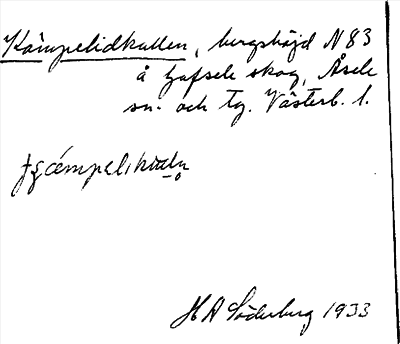 Kämpelidkullen, bergshöjd N 83
å Gafsele skog, Åsele
sn. och tg. Västerb. l.
H A Söderberg 1933